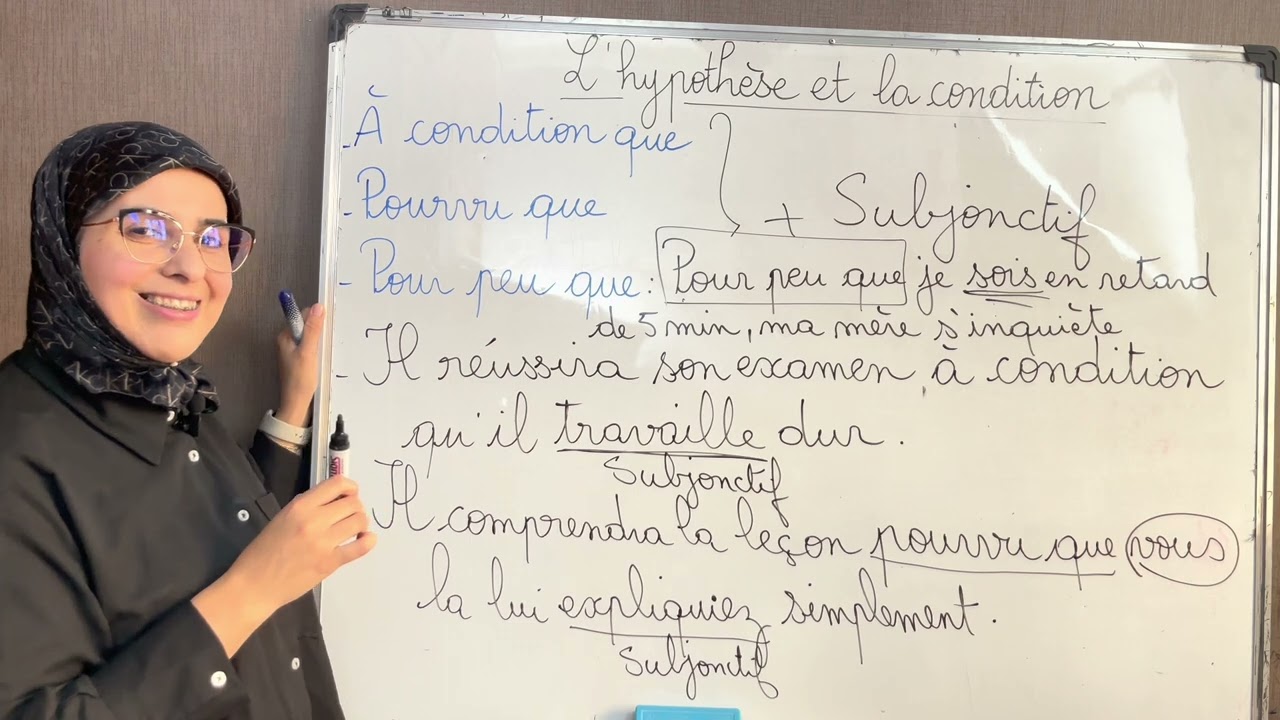 L'hypothèse et la condition
- À condition que
- Pourvu que
+ Subjonctif
- Pour peu que : Pour peu que je sois en retard
de 5 min, ma mère s'inquiète
- Il réussira son examen à condition
qu'il travaille dur.
Subjonctif
Il comprendra la leçon pourvu que vous
la lui expliquiez simplement.
Subjonctif